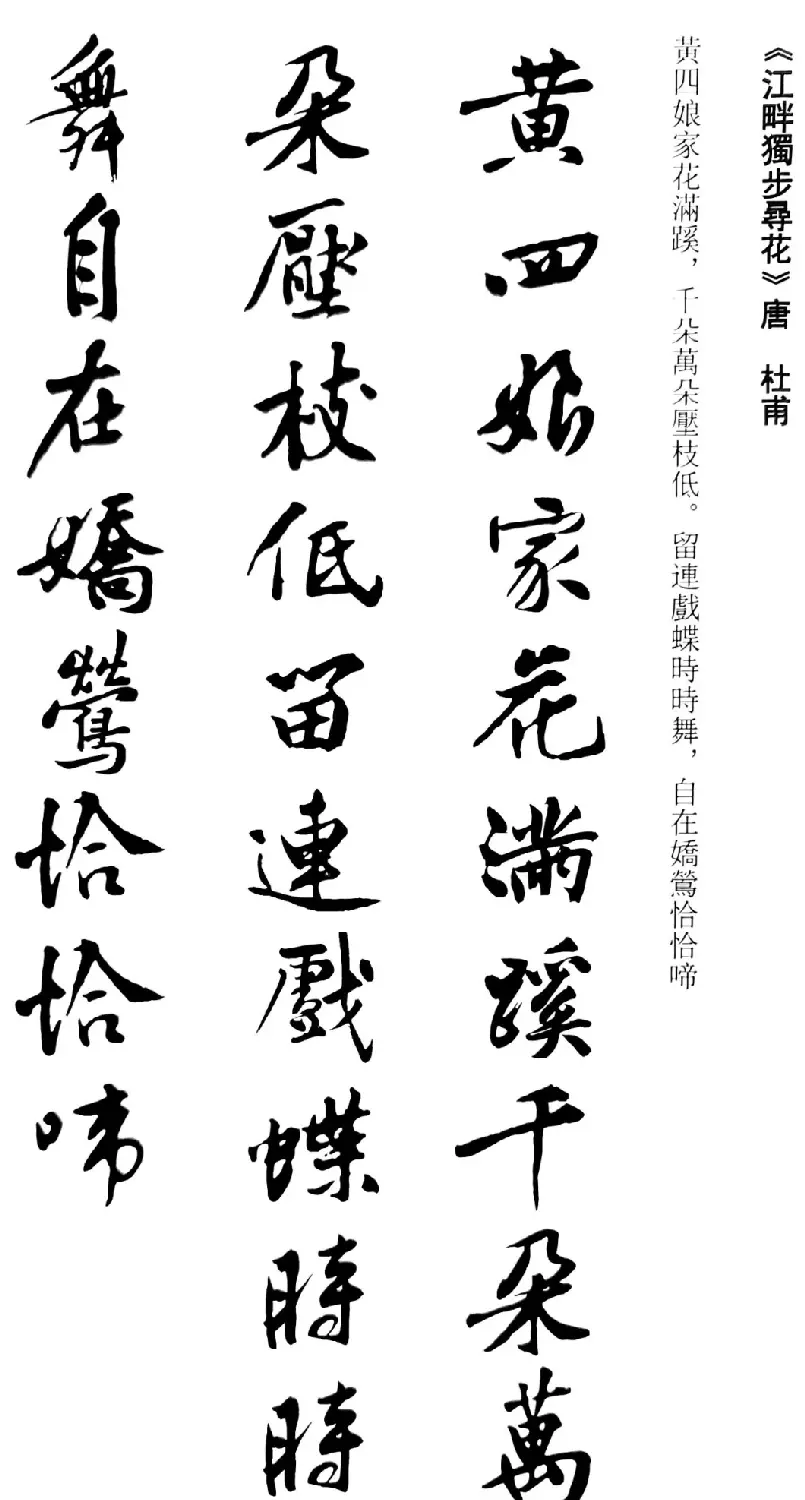 《江畔獨步尋花》唐 杜甫
黃四娘家花滿蹊，千朵萬朵壓枝低。留連戲蝶時時舞，自在嬌鶯恰恰啼
黃四娘家花滿蹊千朵萬
朵壓枝低留連戲蝶時時
舞自在嬌鶯恰恰啼